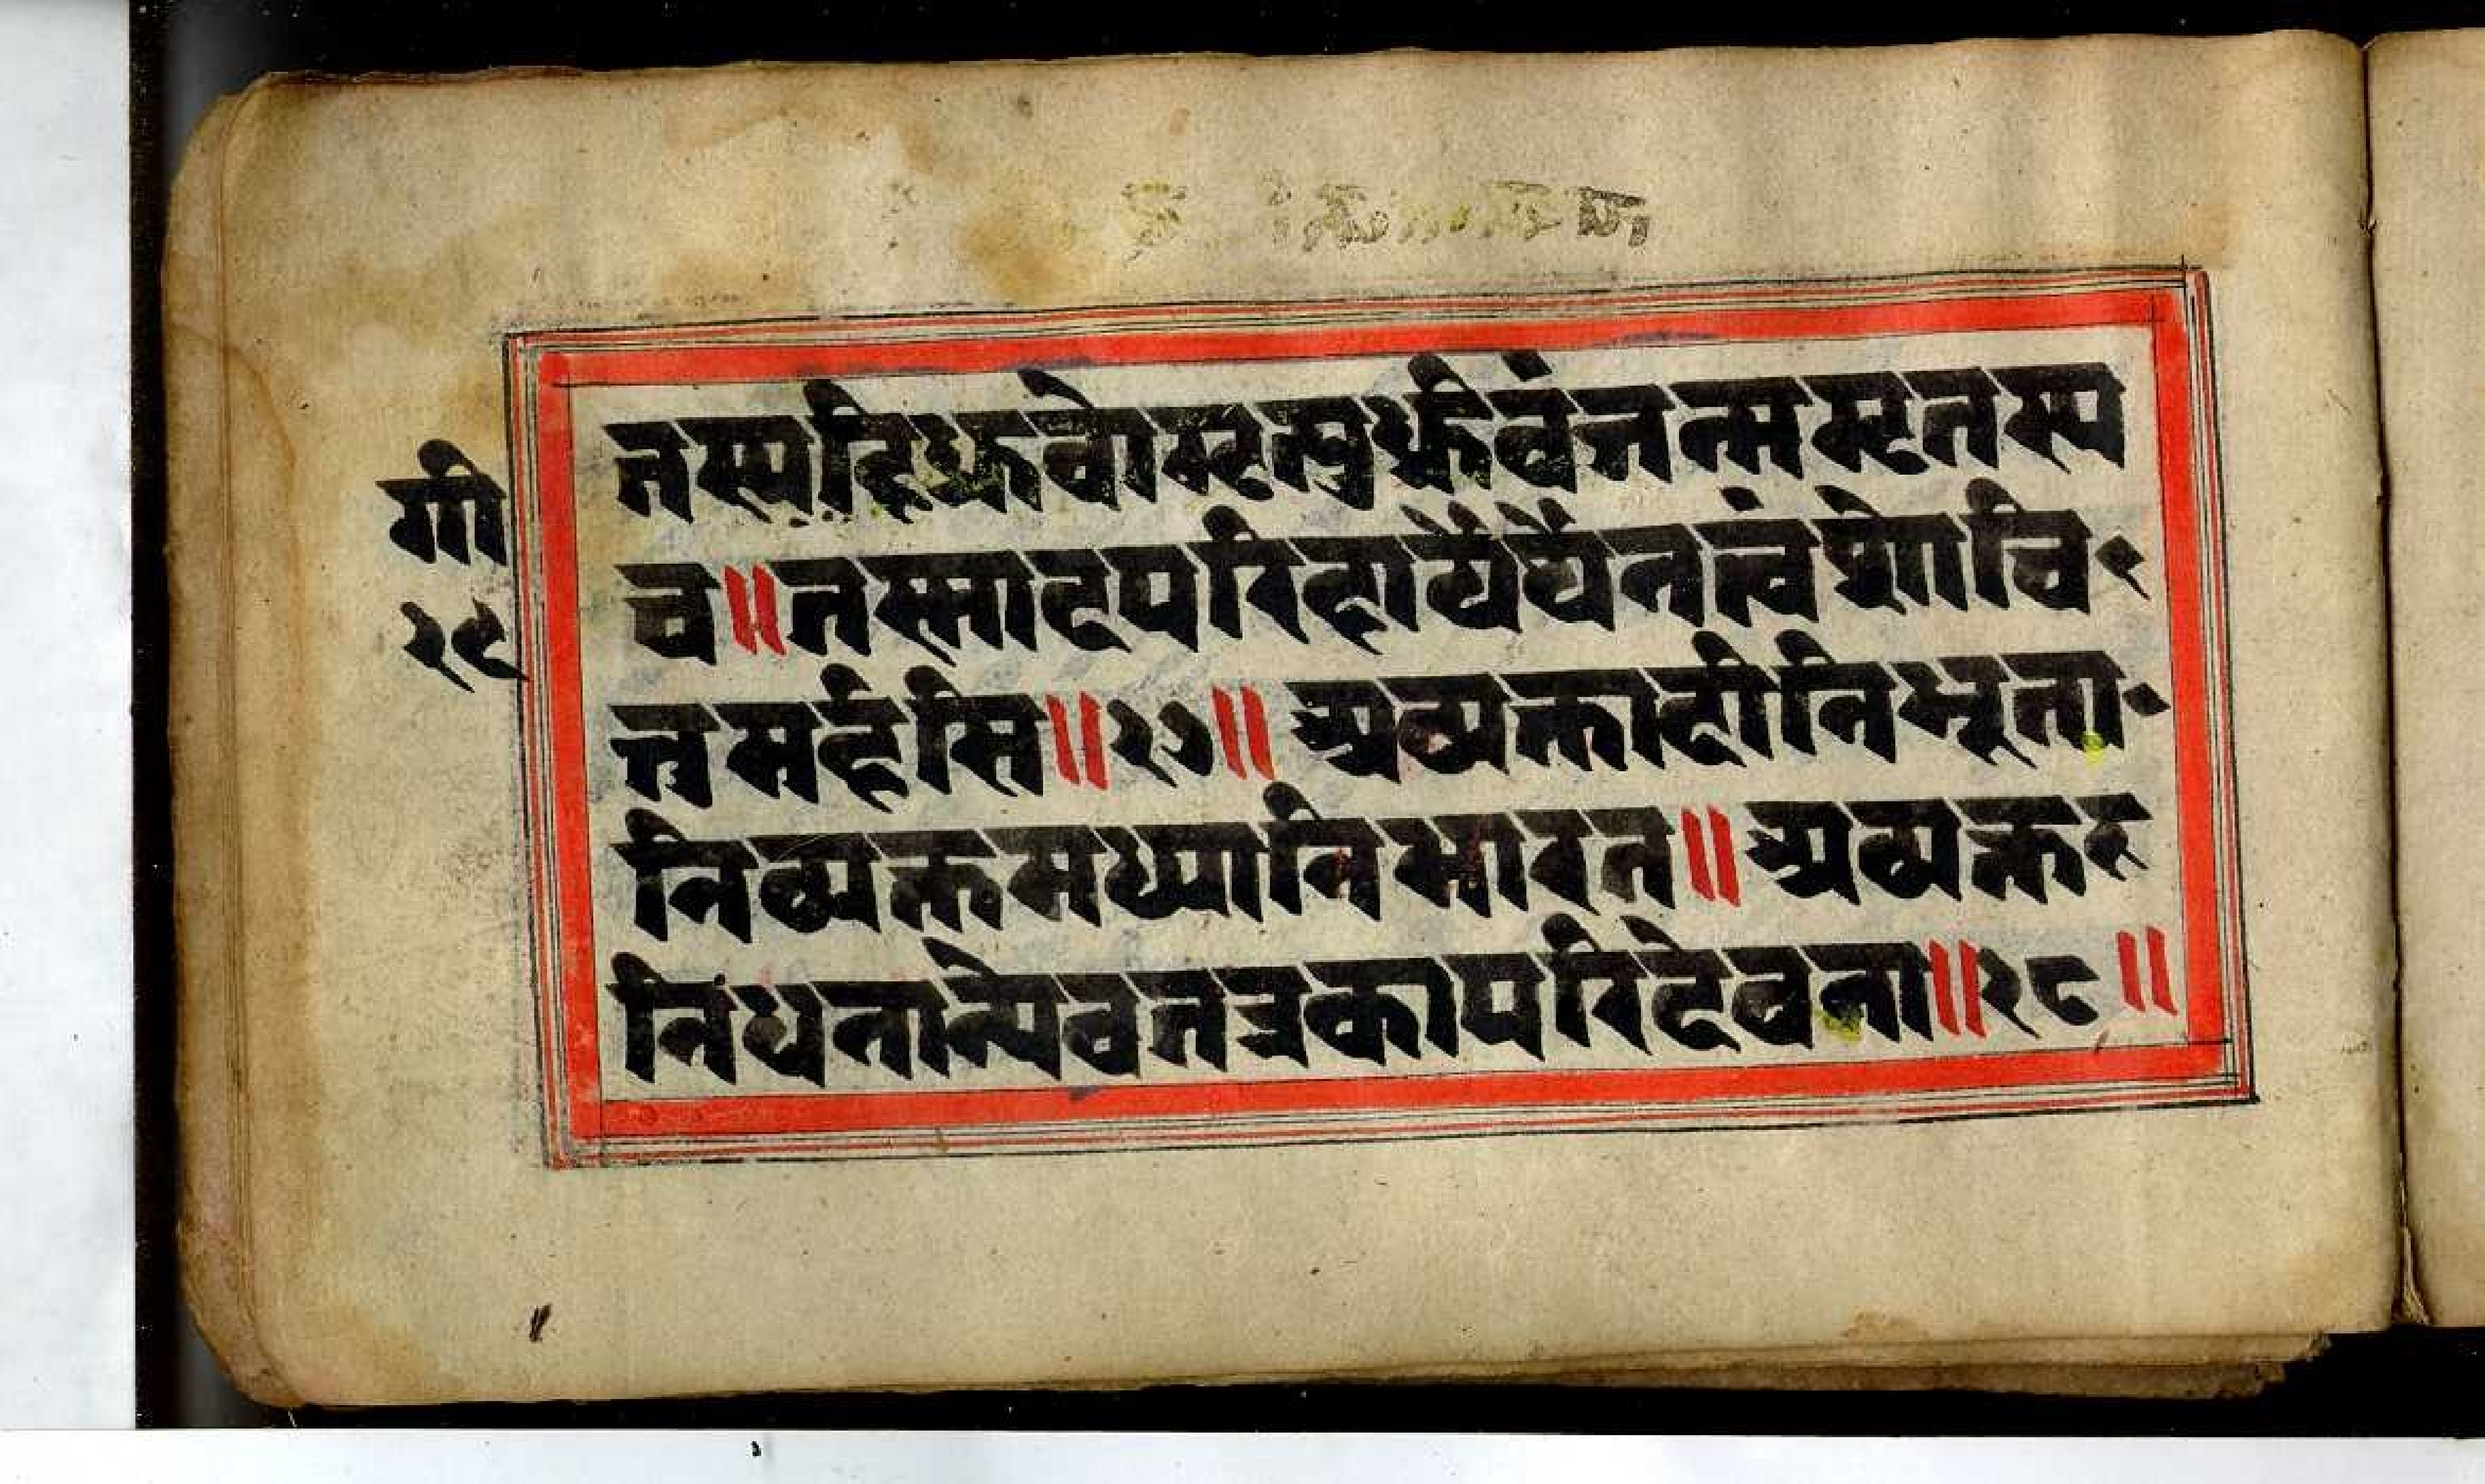 तस्यहिध्रुवोमृत्युर्ध्रुवंजन्ममृतस्य
च॥तस्मादपरिहार्येर्थेनत्वंशोचि
गी
२९
तुमर्हसि॥२७॥अव्यक्तादीनिभूता
निव्यक्तमध्यानिभारत॥अव्यक्त
निधनान्येवतत्रकापरिदेवना॥२८॥